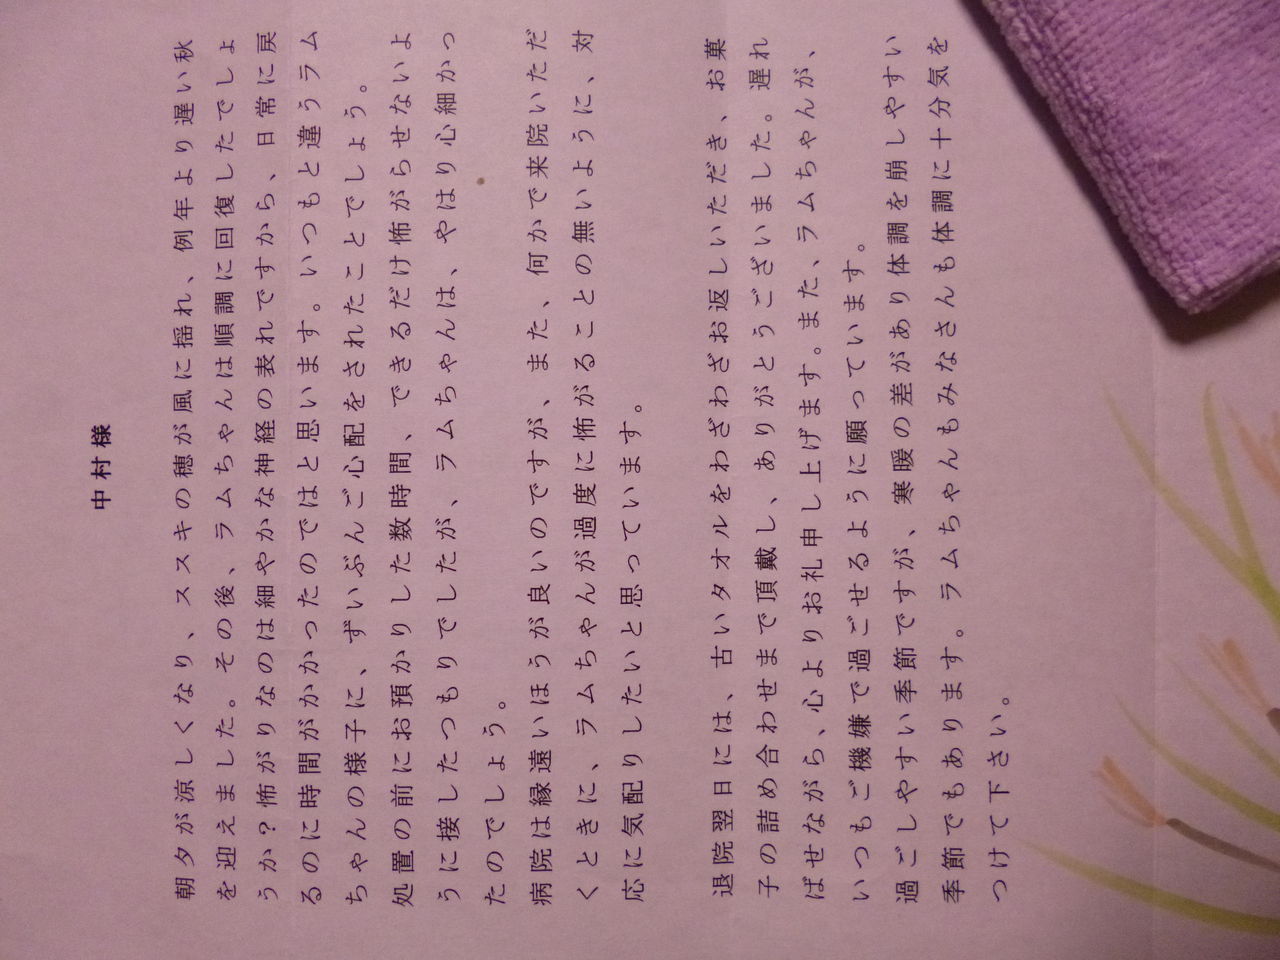 中村様
朝夕が涼しくなり、ススキの穂が風に揺れ、例年より遅い秋
を迎えました。その後、ラムちゃんは順調に回復したでしょ
うか？怖がりなのは細やかな神経の表れですから、日常に戻
るのに時間がかかったのではと思います。いつもと違うラム
ちゃんの様子に、ずいぶんご心配をされたことでしょう。
処置の前にお預かりした数時間、できるだけ怖がらせないよ
うに接したつもりでしたが、ラムちゃんは、やはり心細かっ
たのでしょう。
病院は縁遠いほうが良いのですが、また、何かで来院いただ
くときに、ラムちゃんが過度に怖がることの無いように、対
応に気配りしたいと思っています。
退院翌日には、古いタオルをわざわざお返しいただき、お菓
子の詰め合わせまで頂戴し、ありがとうございました。遅れ
ばせながら、心よりお礼申し上げます。また、ラムちゃんが、
いつもご機嫌で過ごせるように願っています。
過ごしやすい季節ですが、寒暖の差があり体調を崩しやすい
季節でもあります。ラムちゃんもみなさんも体調に十分気を
つけて下さい。